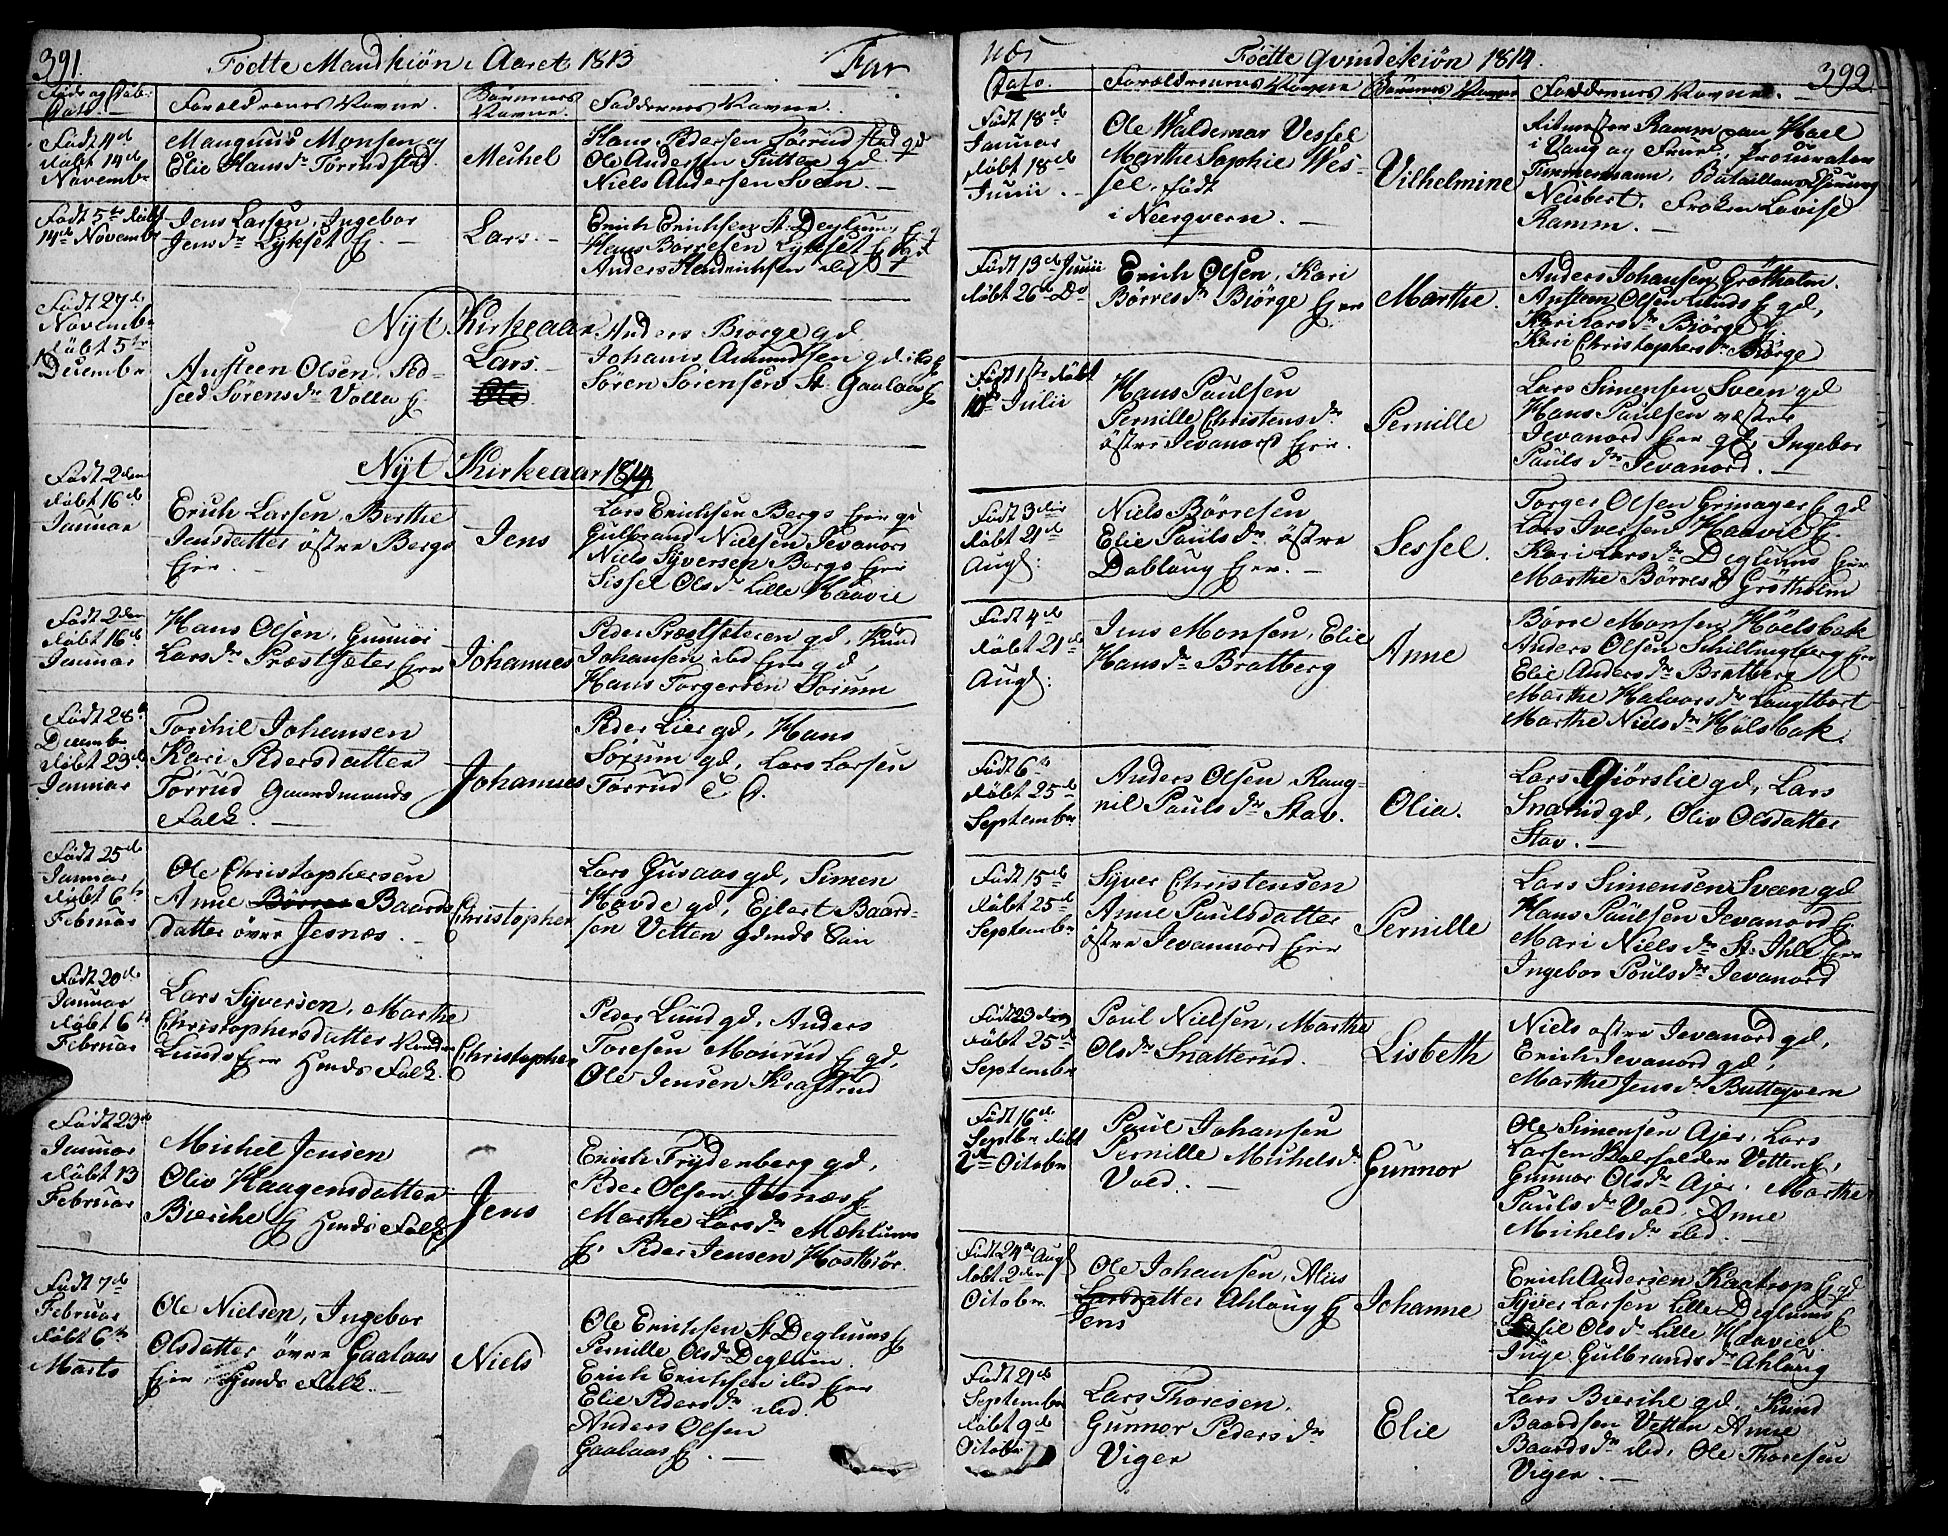 391.
Födte Mandkiön i Aaret 1813
Far
Föde og Döb:
Dato.
Forældrenes Navne.
Börnenes
Navne.
Faddernes Navne.
Födt 4de
döbt 14de
Novembr
Mangnus Monsen og
Elie Hansdr Törrudstad.
Michel
Hans Pedersen Törrudstad gd
Ole Andersen Putten gd.
Niels Andersen Sveen. —
Födt 5te döbt
14de Novembr
Jens Larsen, Ingebor
Jensdr Lykset Ej. —
Lars. —
Erich Erichsen St. Deglum, Ej
Hans Börresen Lykset Ej gd
Anders Hendrichsen ibid
Födt 27de
Novembr
döbt 5te
Decembr
Nyt Kirkeaar
Austeen Olsen, Sid-
sel Sörensdr Volla Ej
Lars. —
Ole
Anders Biörge gd.
Johanis Amundsen gd ibid
Sören Sörensen St. Gaalaas Ej
Nyt Kirkeaar 1814
Födt 2den
döbt 16de
Januar
Erich Larsen, Berthe
Jensdatter östre Bergs
Eje. —
Jens
Lars Erichsen Bergs Eje gd
Gulbrand Nielsen Jevanord
Niels Syversen Bergs Eje
Sissel Olsdr Lille Haavie
Födt 2den
döbt 16de
Januar
Hans Olsen, Gunnor
Larsdr Præstsæter Eje
Johannes
Peder Præstsæteren gd, Knud
Johansen ibid Eje gd,
Hans Torgersen Sorum
Födt 28de
Decembr
döbt 23de
Januar
Torchil Johansen
Kari Pedersdatter
Törrud Gaardmands
Folk. —
Johannes
Peder Lier gd, Hans
Sörum gd, Lars Larsen
Törrud
Födt 25de
Januar
döbt 6te
Februar
Ole Christophersen
Anne Börres Baards
datter övre Jesnes. —
Christopher
Lars Gusaas gd, Simen
Hovde gd, Ejlert Baard-
sen Vetten Gdmds Sön
Födt 20de
Januar
döbt 6te
Februar
Lars Syversen, Marthe
Christophersdatter
Lunds Eje Hmds Folk.
Christopher
Peder Lund gd, Anders
Toresen Monrud Ej gd,
Ole Jensen Kraftrud
Födt 23de
Januar
döbt 13
Februar
Michel Jensen
Oliv Haagensdatter
Bierche Ej Hmds Folk
Jens
Erich Frydenberg gd,
Peder Olsen Jesnæs Ej
Marthe Larsdr Mæhlums
Ej, Peder Jensen Hostbiör.
Födt 7de
Februar
döbt 6te
Marts
Ole Nielsen, Ingebor
Olsdatter övre Gaalaas
Eje Hmds Folk. —
Niels
Ole Erichsen St. Deglums Ej
Pernille Olsdr Deglum.
Erich Erichsen ibid Eje
Elie Pedersdr ibid.
Anders Olsen
Gaalaas Ej. —
Födte Qvindekiön 1814.
392.
Dato.
Forældrenes Navne
Börnenes Navne
Faddernes Navne. —
Födt 18de
Januar
döbt 18de
Junii. —
Ole Waldemar Vessel
Marthe Sophie Wes-
sel, födt
i Neergvern. —
Vilhelmine
Ritmester Ramm paa Hoel
i Vang og Frue, Procurator
Timmermann, Bataillons
Neubert, Fröken Lovise
Ramm. —
Födt 13de Junii
döbt 26de Do
Erich Olsen, Kari
Börresdr Biörge Eje
Marthe.
Anders Johansen Grötholm.
Austeen Olsen Lunds Ej gd,
Kari Larsdr Biörge Ej
Kari Christophersdr Biörge
Födt 1ste döbt
10de Julii
Hans Paulsen
Pernille Christensdr
östre Jevanord Eje.
Pernille
Lars Simensen Sveen gd
Hans Paulsen vestre
Jevanord Eje gd, Ingebor
Paulsdr Jevanord. —
Födt 3die
döbt 21de
Aug:
Niels Börresen
Elie Paulsdr östre
Dablaug Eje. —
Sessel.
Torger Olsen Grinager Ej gd
Lars Iversen Haavie Ej.
Kari Larsdr Deglums Eje
Marthe Börresdr Grötholm
Födt 4de
döbt 21de
Aug:
Jens Monsen, Elie
Hansdr Bratberg
Anne
Börre Monsen Höelsbak
Anders Olsen Schillingberg Eje
Elie Andersdr Bratberg
Marthe Halvorsdr Langtbort
Marthe Nielsdr Hölsbak.
Födt 6te
döbt 25de
Septembr
Anders Olsen Raag-
nil Paulsdr Stav.
Olia.
Lars Giörslie gd, Lars
Snarud gd, Oliv Olsdatter
Stav. —
Födt 15de
döbt 25de
Septembr
Syver Christensen
Anne Paulsdatter
östre Jevannord Eje
Pernille
Lars Simensen Sveen gd
Hans Paulsen Jevanord Ej
Mari Nielsdr St. Ihle Eje
Ingebor Poulsdr Jevanord
Födt 23de
döbt 25de
Septembr
Paul Nielsen, Marthe
Olsdr Snatterud.
Lisbeth
Niels östre Jevanord gd,
Erich Jevanord gd,
Marthe Jensdr Butteqvern
Födt 16de
Septbr döbt
2den Octobr
Paul Johansen
Pernille Michelsdr
Vold. —
Gunnor
Ole Simensen Ajer, Lars
Larsen Vetten Ej,
Gunnor Olsdr Ajer, Marthe
Paulsdr Vold, Anne
Michelsdr ibid. —
Födt 24de Aug
döbt 2den
Octobr
Ole Johansen, Alis
Larsdatter Ahlaug Ej
Jens
Johanne
Erich Andersen Kaatrop Ej gd
Syver Larsen Lille Deglums Ej
Sissil Olsdr Lille Haavie
Inge Gulbrandsdr Ahlaug
Födt 21de
Septembr
döbt 9de
Octobr
Lars Thoresen,
Gunnor Pedersdr
Viger
Elie
Lars Bierche gd, Knud
Baardsen Vetten Anne
Baardsdr ibid, Ole Thoresen
Viger. —